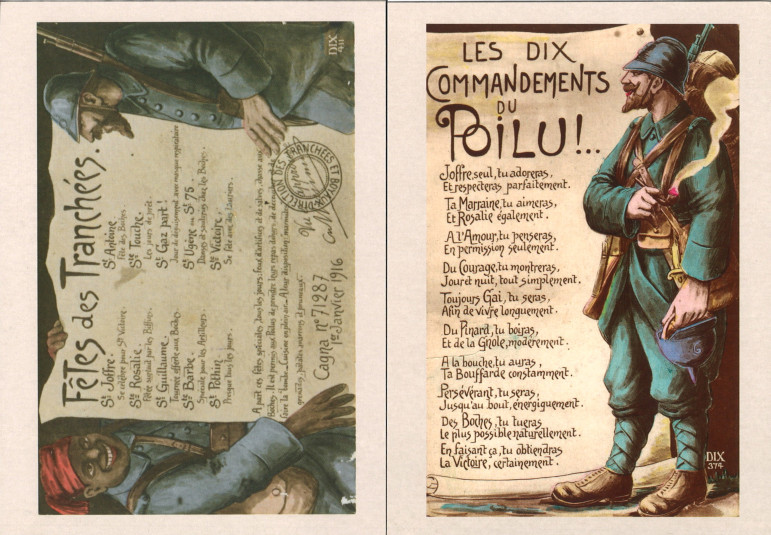 Fêtes des Tranchées.
St Joffre.
Se célèbre pour Ste Victoire.
Ste Rosalie.
Fêtée surtout par les Biffins.
St Guillaume.
Tournée offerte aux Boches.
Ste Barbe.
Spéciale pour les Artilleurs.
St Péthin
Presque tous les jours.
St Antoine
Fête des Boches.
Ste Touche.
Les jours de prêt.
St Gaz part!
Jour de déguisement avec masque respiratoire
St Ugène ou St 75.
Danses et sauteries chez les Boches.
Ste Victoire.
Se fête avec des Lauriers.
A part ces fêtes spéciales, tous les jours, feux d'artifices et de salves, danse avec
Boches. Il est permis aux Poilus de prendre leurs repas dehors, de
faire la bombe. Cuisine en plein air. A leur disposition: marmites
grenades, patates, marrons et pruneaux.
Cagna n° 71287
1er Janvier 1916
DIRECTION DES TRANCHÉES ET BOYAUX
Vu
DIX
411
LES DIX
COMMANDEMENTS
DU
POILU!..
Joffre, seul, tu adoreras,
Et respecteras parfaitement.
Ta Marraine, tu aimeras,
Et Rosalie également.
A l'Amour, tu penseras,
En permission seulement.
Du Courage, tu montreras,
Jour et nuit, tout simplement.
Toujours Gai, tu seras,
Afin de Vivre longuement.
Du Pinard, tu boiras,
Et de la Gnole, modérément.
A la bouche, tu auras,
Ta Bouffarde constamment.
Persévérant, tu seras,
Jusqu'au bout, énergiquement.
Des Boches, tu tueras
Le plus possible naturellement.
En faisant ça, tu obtiendras
La Victoire, certainement.
DIX
374